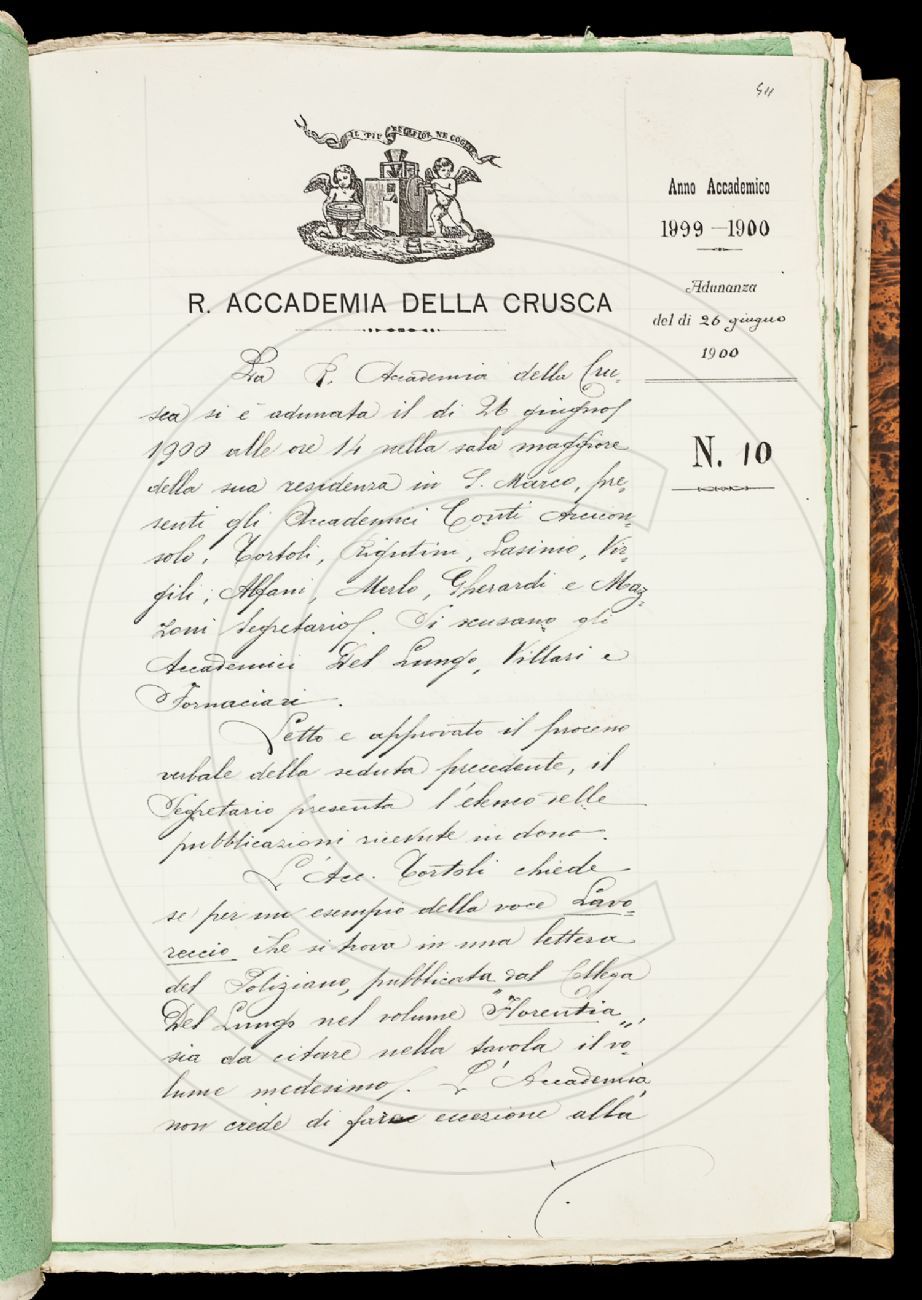 54
IL PIÙ BEL FIOR NE COGLIE
Anno Accademico
1999-1900
Adunanza
del dì 26 giugno
1900
N. 10
R. ACCADEMIA DELLA CRUSCA
La R. Accademia della Cru-
sca si è adunata il dì 26 giugno
1900 alle ore 14 nella sala maggiore
della sua residenza in S. Marco, pre-
senti gli Accademici Conti Arcicon-
solo, Tortoli, Rigutini, Lasinio, Vir-
gili, Alfani, Merlo, Gherardi e Maz-
zoni Segretario. Si scusano gli
Accademici Del Lungo, Villari e
Fornaciari.
Letto e approvato il processo
verbale della seduta precedente, il
Segretario presenta l'elenco delle
pubblicazioni ricevute in dono.
L'Acc. Tortoli chiede
se per un esempio della voce Lavo-
reccio che si trova in una lettera
del Poliziano, pubblicata dal Collega
Del Lungo nel volume "Florentia",
sia da citare nella tavola il vo-
lume medesimo. L'Accademia
non crede di fare eccezione alla